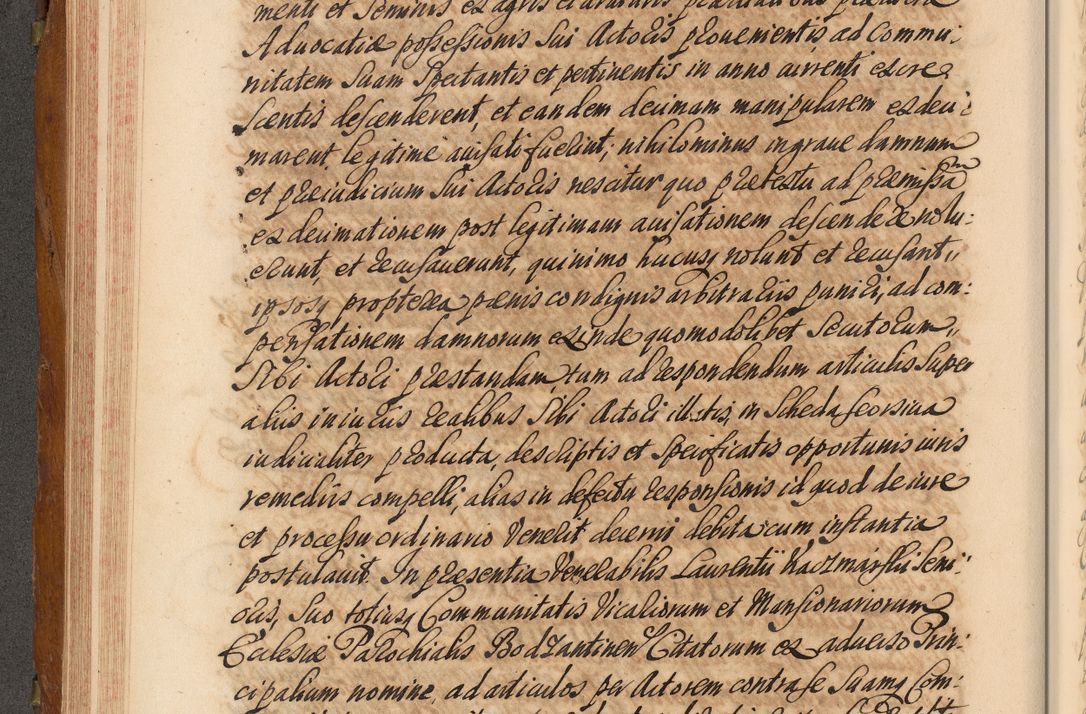 menti et Seminis ex agris et araturis
Advocatiæ possessionis sui Actoris provenientis, ad Commu:
nitatem suam Spectantis et pertinentis in anno currenti excre
scentis descenderent, et eandem decimam manipularem ex deci:
marent legitime avisati fuerint; nihilominus in grave damnum
et præjudicium sui Actoris nescitur quo prætextu ad præmissam
exdecimationem post legitimam avisationem descendere nolu:
erunt, et recusaverunt, quinimo hucusq nolunt et recusant,,
ipsosq propterea pænis condignis arbitrariis puniri, ad com:
pensationem damnorum exinde quomodolibet Secutorum,,
Sibi Actori præstandam, tum ad respondendum articulis super
aliis injuriis realibus Sibi Actori illatis, in Scheda seorsiva
judicialiter producta, descriptis et Specificatis opportunis juris
remediis compelli, alias in defectu responsionis id quod de jure
et processu ordinario venerit decerni debita cum instantia
postulavit. In præsentia Venerabilis Laurentii Kaczmarski Seni:
oris, suo totiusq Communitatis Vicariorum et Mansionariorum
Ecclesiæ Parochialis Bodzantinen Citatorum ex adverso Prin:
cipalium nomine, ad articulos per Actorem contra se suamq Com: